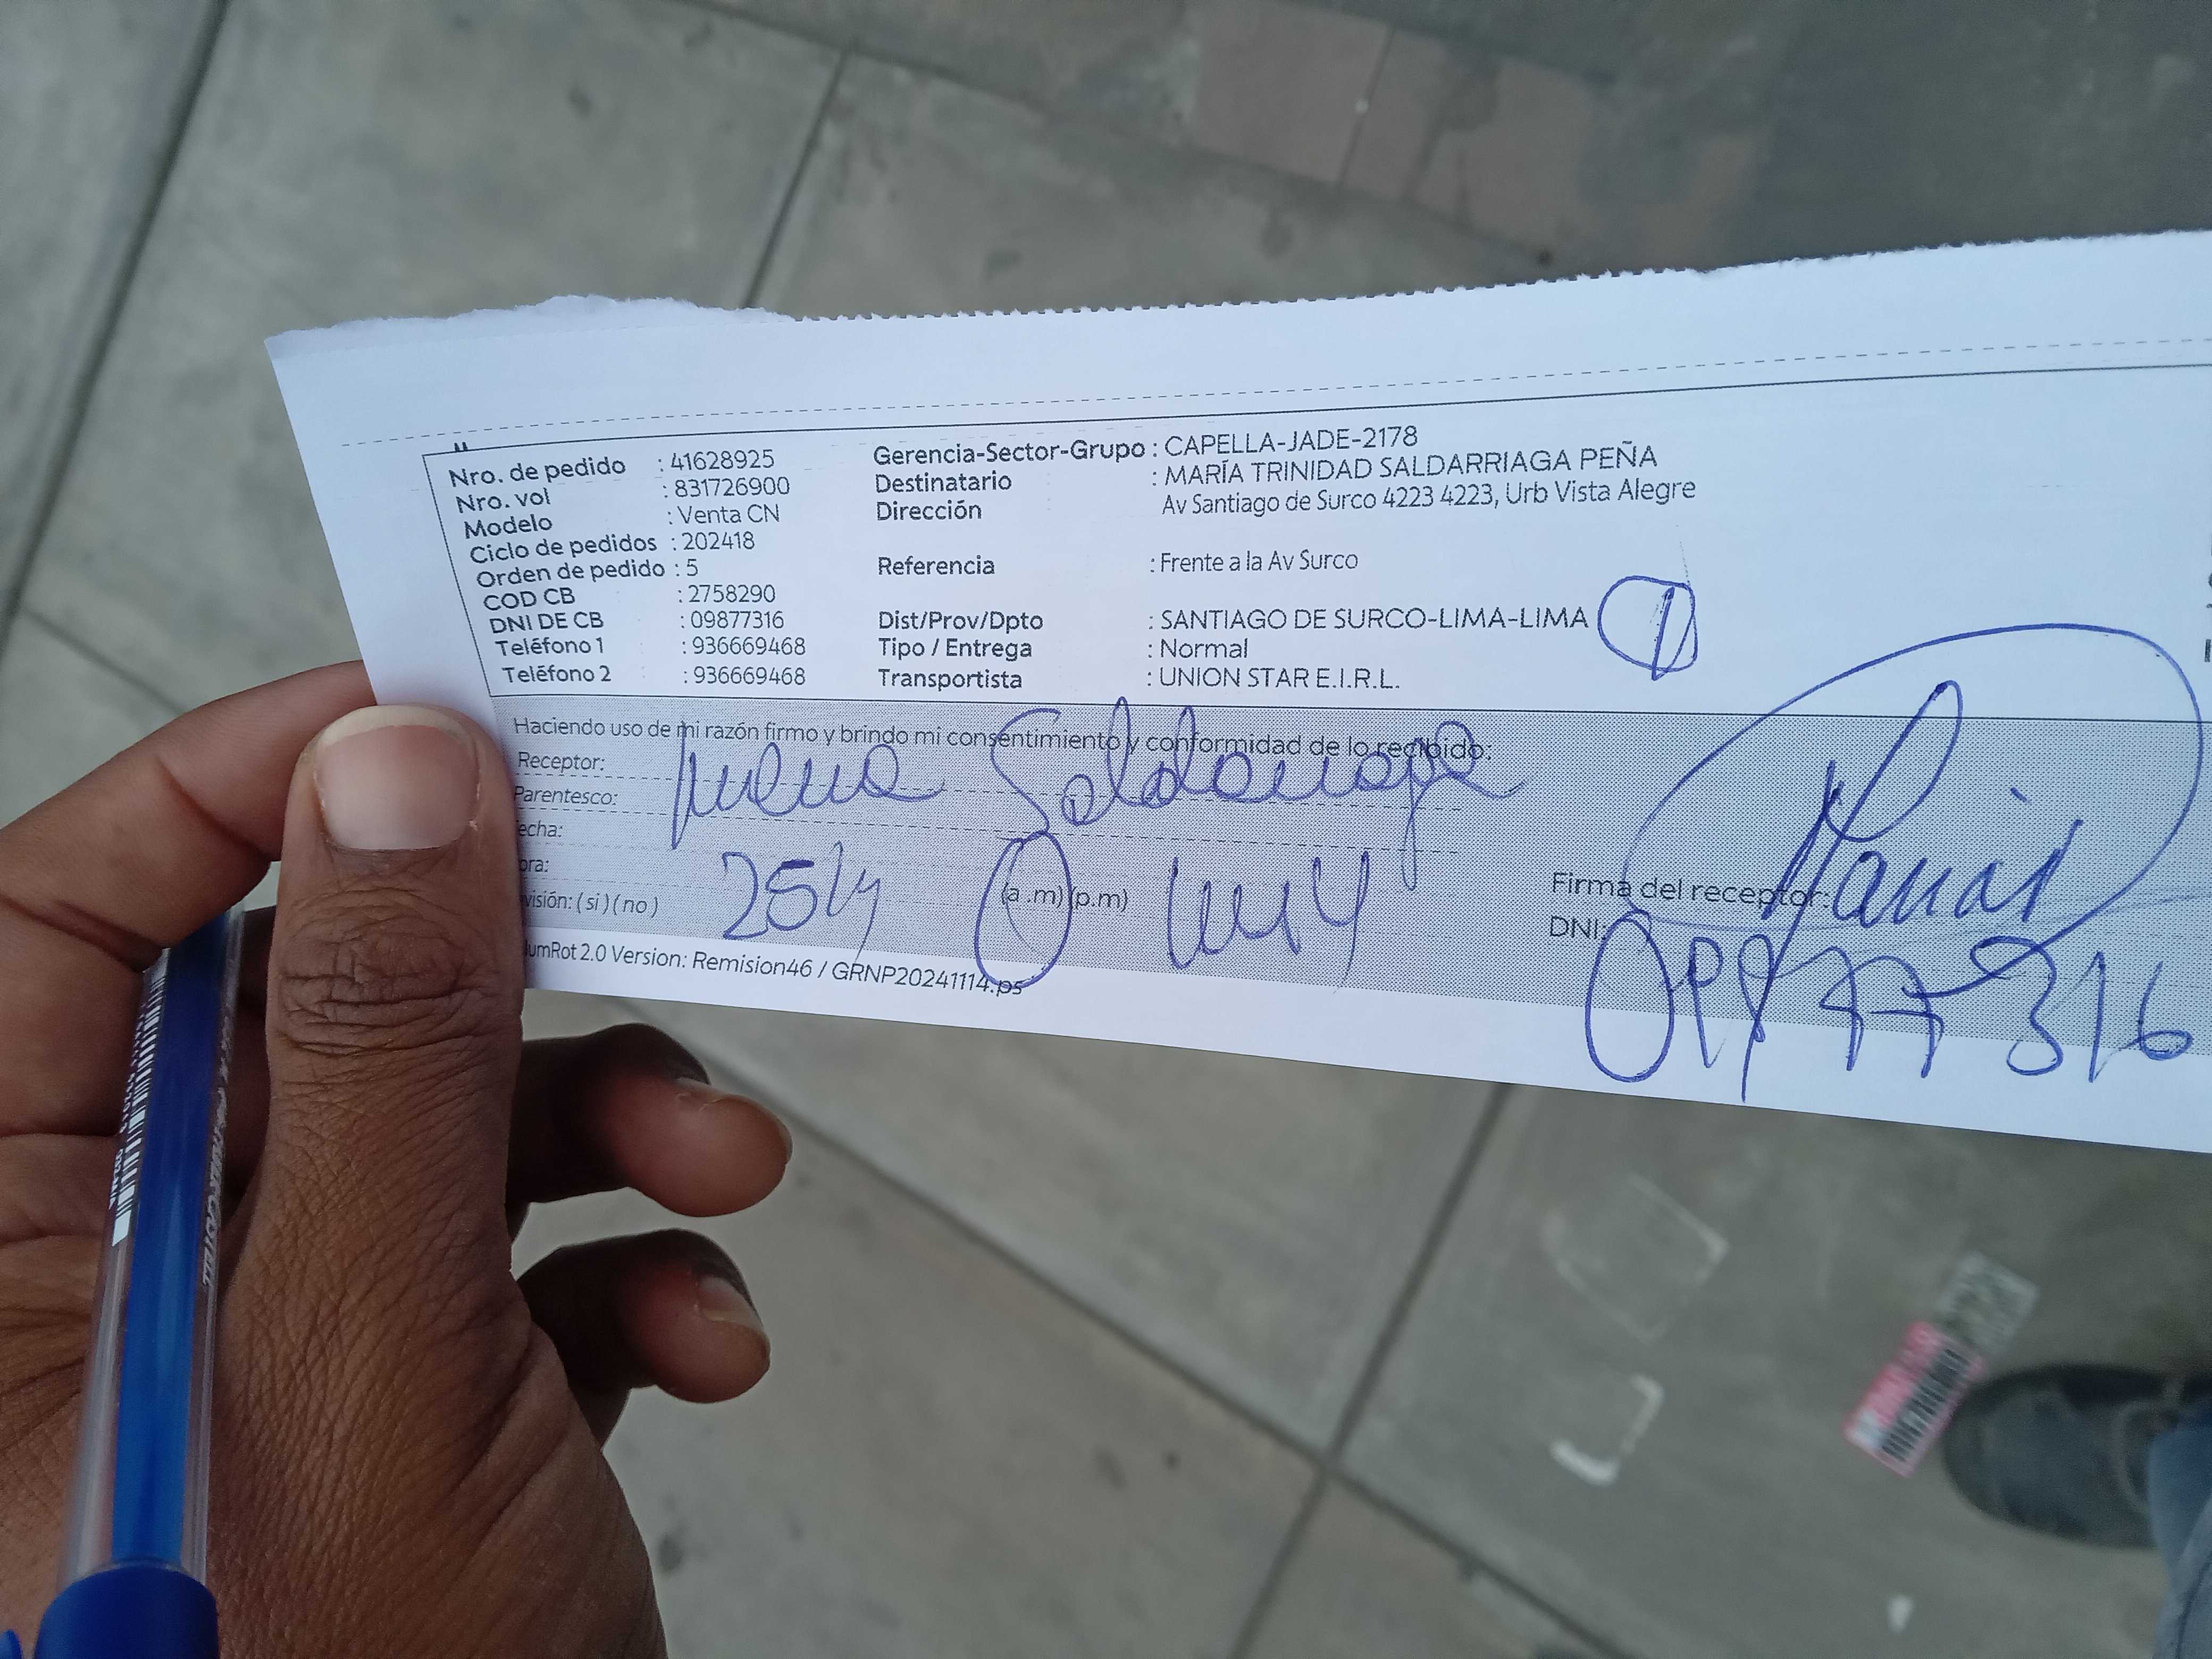 Nro. de pedido : 41628925
Nro. vol : 831726900
Modelo : Venta CN
Ciclo de pedidos : 202418
Orden de pedido : 5
COD CB : 2758290
DNI DE CB : 09877316
Teléfono 1 : 936669468
Teléfono 2 : 936669468
Gerencia-Sector-Grupo : CAPELLA-JADE-2178
Destinatario : MARÍA TRINIDAD SALDARRIAGA PEÑA
Dirección Av Santiago de Surco 4223 4223, Urb Vista Alegre
Referencia : Frente a la Av Surco
Dist/Prov/Dpto : SANTIAGO DE SURCO-LIMA-LIMA
Tipo / Entrega : Normal
Transportista : UNION STAR E.I.R.L.
1
Haciendo uso de mi razón firmo y brindo mi consentimiento y conformidad de lo recibido:
Receptor: Saldarriaga
Parentesco:
echa:
ora:
(a .m) (p.m)
visión: ( si ) ( no )
Firma del receptor:
DNI: 09877316
umRot 2.0 Version: Remision46 / GRNP20241114.ps